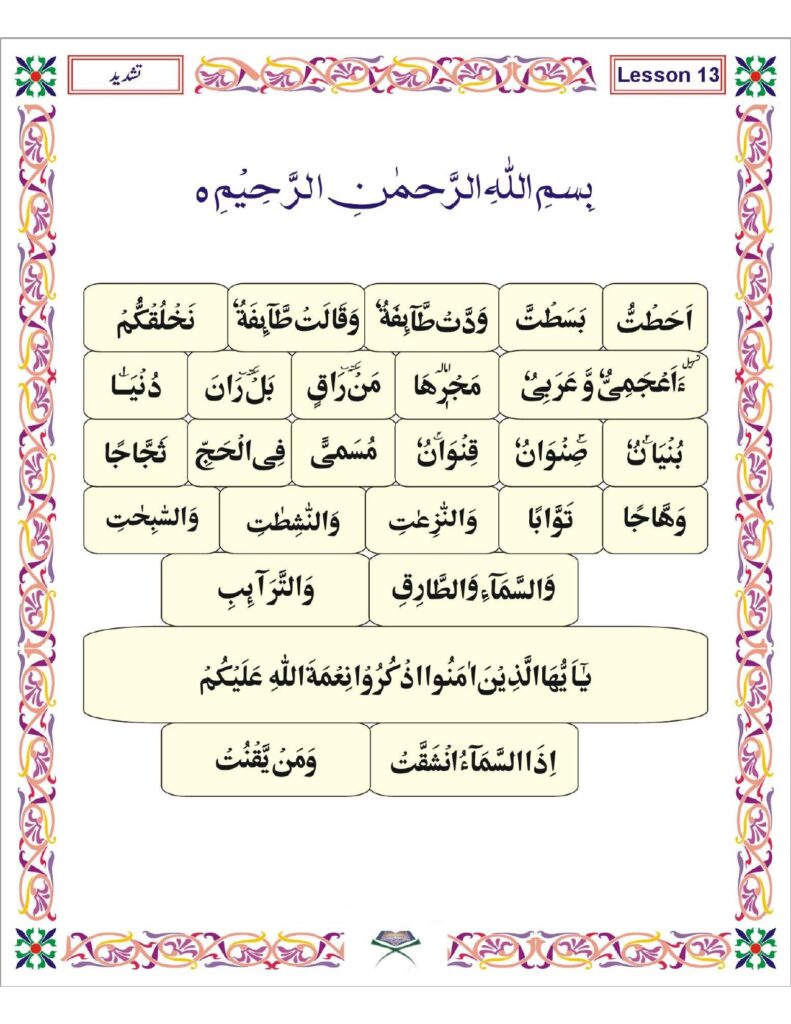 تشدید Lesson 13
بِسْمِ اللّٰهِ الرَّحْمٰنِ الرَّحِيْمِ ٥
اَحَطْتُّ بَسَطْتَّ وَدَّتْ طَّآئِفَةٌ وَقَالَتْ طَّآئِفَةٌ نَخْلُقْكُّمْ
ءَاَعْجَمِيٌّ وَّ عَرَبِيٌّ مَجْرٖىهَا مَنْ رَاقٍ بَلْ رَانَ دُنْيَا
بُنْيَانٌ صِنْوَانٌ قِنْوَانٌ مُسَمًّى فِى الْحَجِّ ثَجَّاجًا
وَهَّاجًا تَوَّابًا وَالنّٰزِعٰتِ وَالنّٰشِطٰتِ وَالسّٰبِحٰتِ
وَالسَّمَآءِ وَالطَّارِقِ وَالتَّرَآئِبِ
يٰٓاَيُّهَا الَّذِيْنَ اٰمَنُوا اذْكُرُوْا نِعْمَةَ اللّٰهِ عَلَيْكُمْ
اِذَا السَّمَآءُ انْشَقَّتْ وَمَنْ يَّقْنُتْ